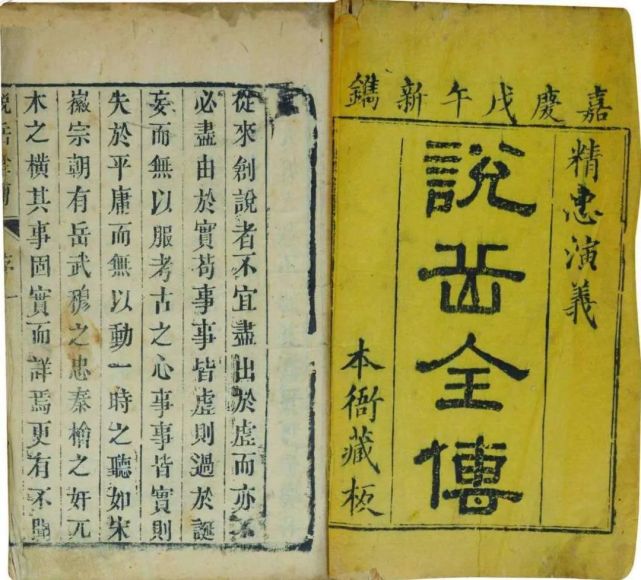 嘉慶戊午新鐫
精忠演義
說岳全傳
本衙藏板
從來創說者不宜盡出於虛而亦
必盡由於實苟事事皆虛則過於誕
妄而無以服考古之心事事皆實則
失於平庸而無以動一時之聽如宋
徽宗朝有岳武穆之忠秦檜之奸兀
木之橫其事固實而詳焉更有不聞